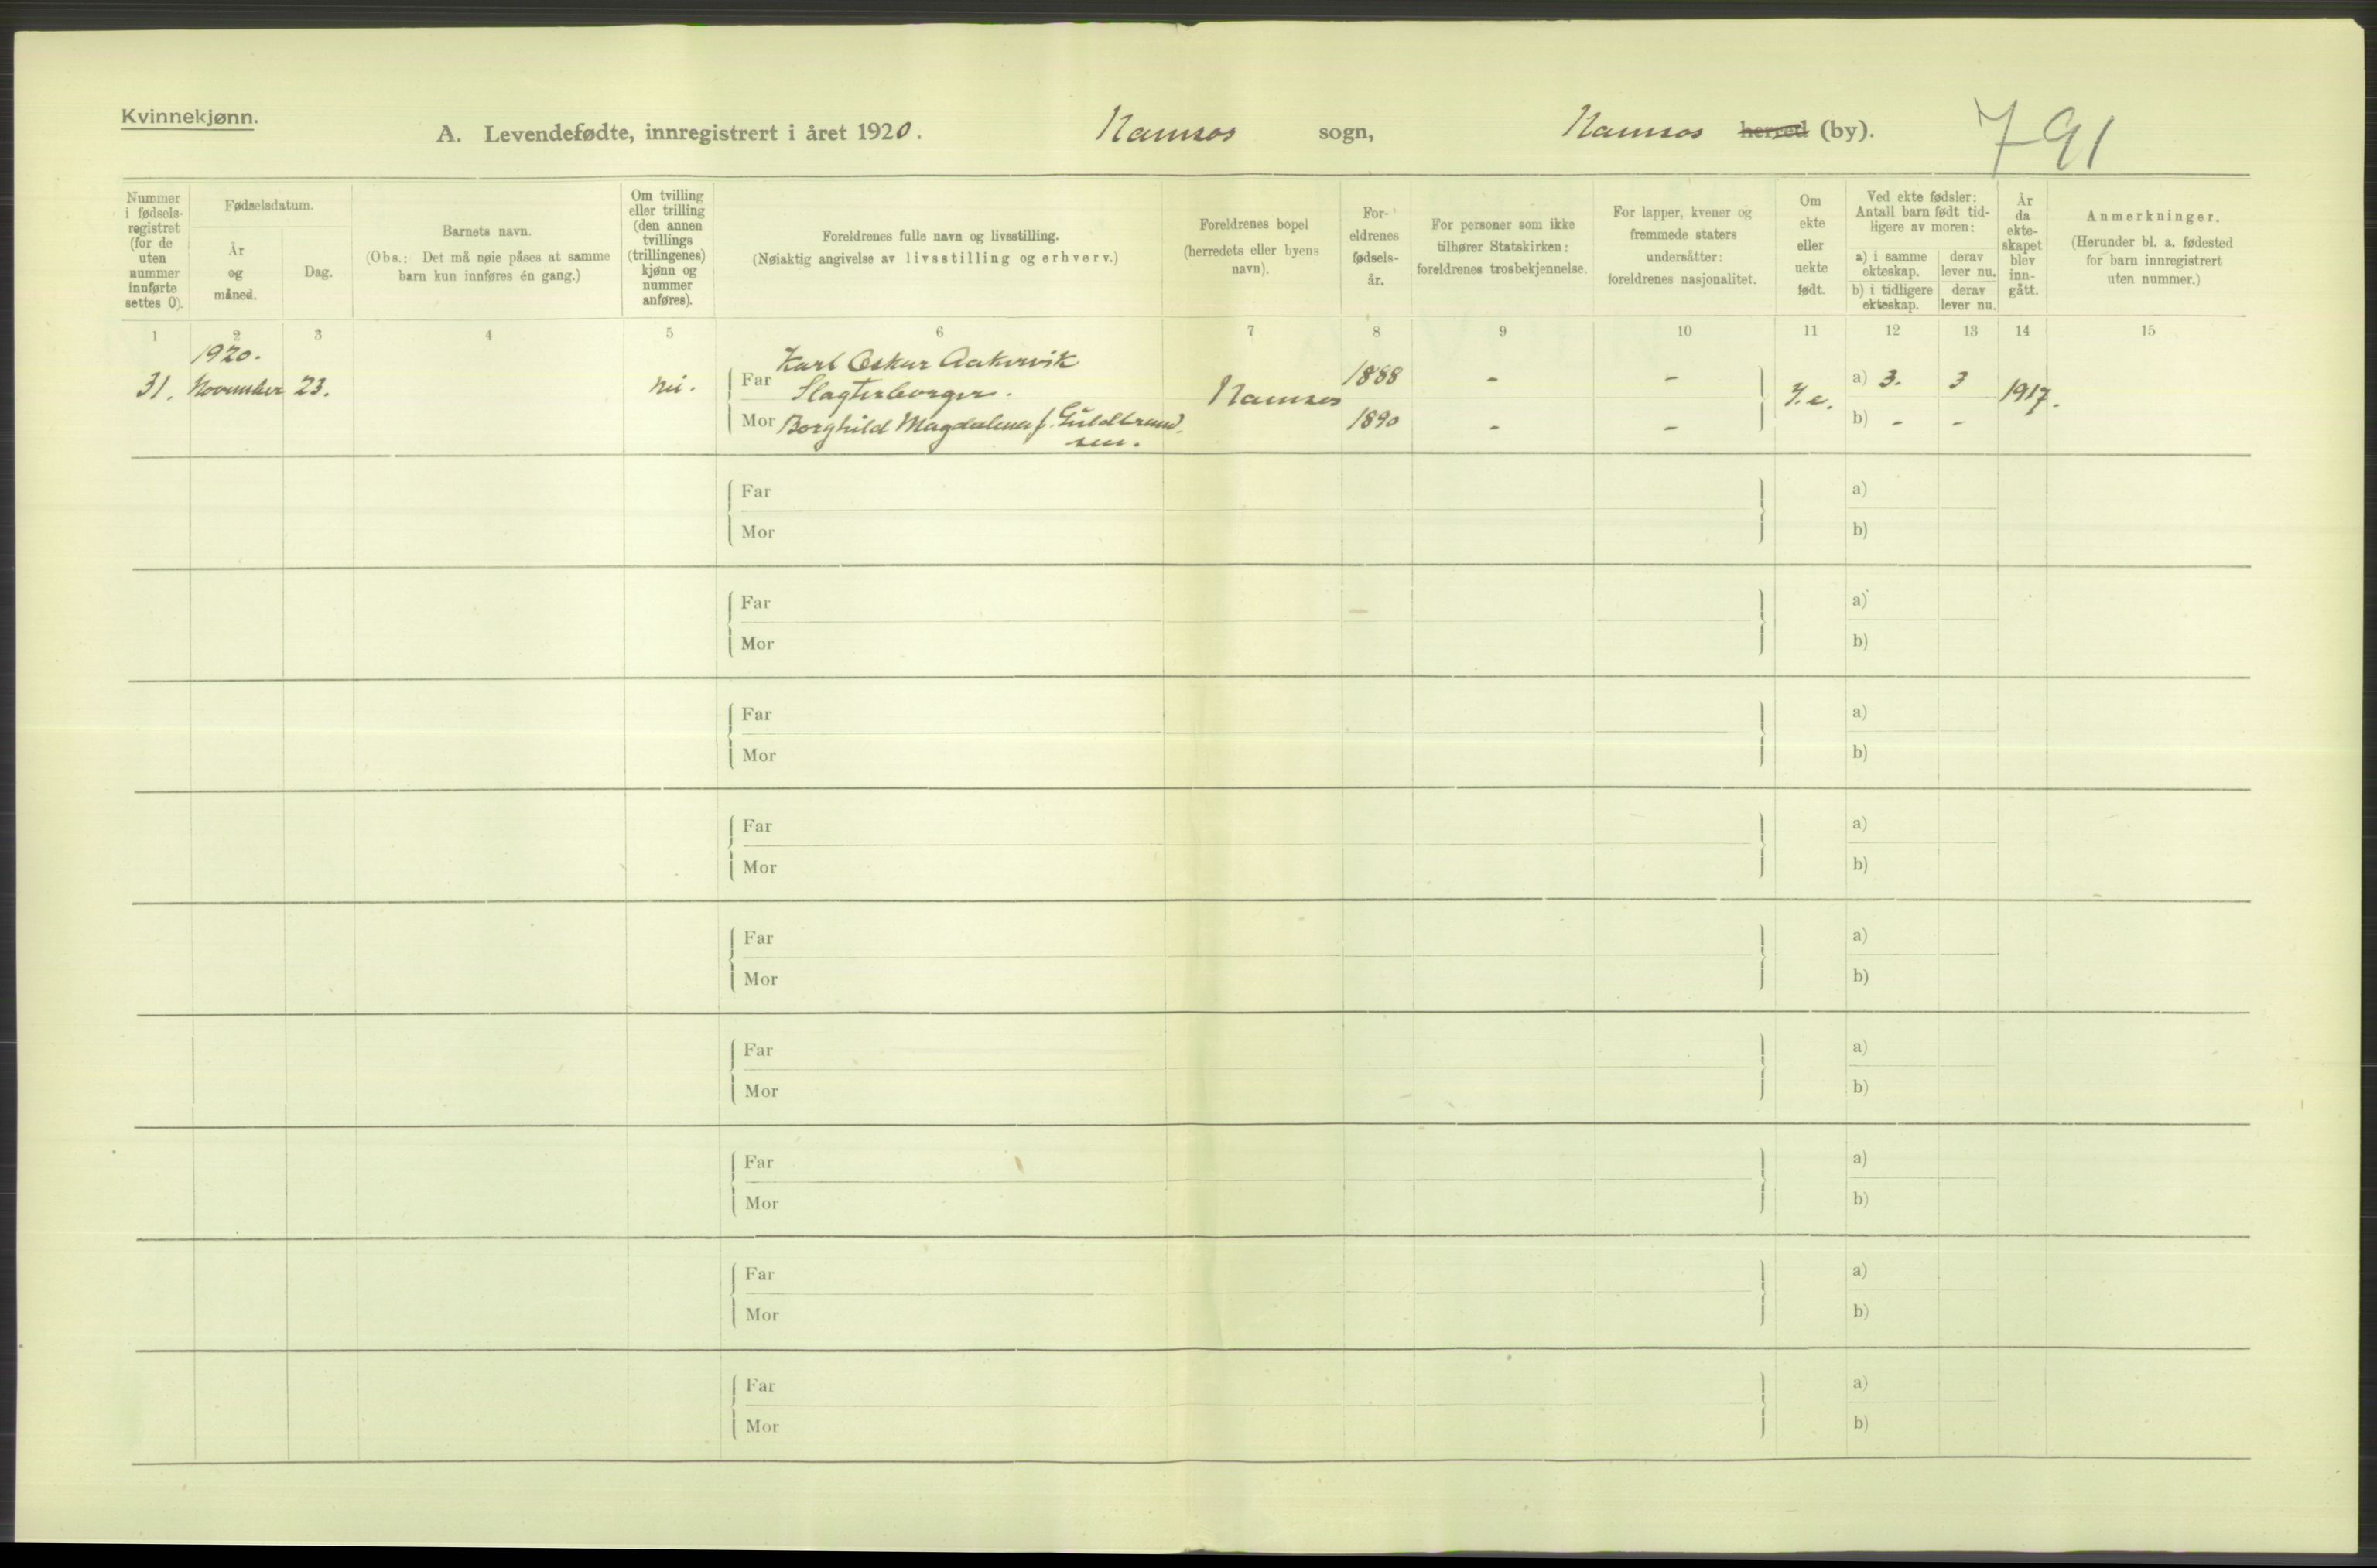 Kvinnekjønn.
A. Levendefødte, innregistrert i året 1920. Namsos sogn, Namsos herred (by). 791
Nummer i fødsels-registret (for de uten nummer innførte settes 0).
Fødselsdatum.
År og måned.
Dag.
Barnets navn.
(Obs.: Det må nøie påses at samme barn kun innføres én gang.)
Om tvilling eller trilling (den annen tvillings (trillingenes) kjønn og nummer anføres).
Foreldrenes fulle navn og livsstilling.
(Nøiaktig angivelse av livsstilling og erhverv.)
Foreldrenes bopel (herredets eller byens navn).
For-eldrenes fødsels-år.
For personer som ikke tilhører Statskirken: foreldrenes trosbekjennelse.
For lapper, kvener og fremmede staters undersåtter: foreldrenes nasjonalitet.
Om ekte eller uekte født.
Ved ekte fødsler: Antall barn født tid-ligere av moren:
a) i samme ekteskap.
derav lever nu.
b) i tidligere ekteskap.
derav lever nu.
År da ekte-skapet blev inn-gått.
Anmerkninger.
(Herunder bl. a. fødested for barn innregistrert uten nummer.)
1 2 3 4 5 6 7 8 9 10 11 12 13 14 15
1920.
Karl Oskar Aakervik
31. November 23. nei. Far Slagterborger. Namsos 1888 - - a) 3. 3 1917.
Mor Borghild Magdalena f. Guldbrand- 1890 - - b) - -
sen.
Far a)
Mor b)
Far a)
Mor b)
Far a)
Mor b)
Far a)
Mor b)
Far a)
Mor b)
Far a)
Mor b)
Far a)
Mor b)
Far a)
Mor b)
Far a)
Mor b)